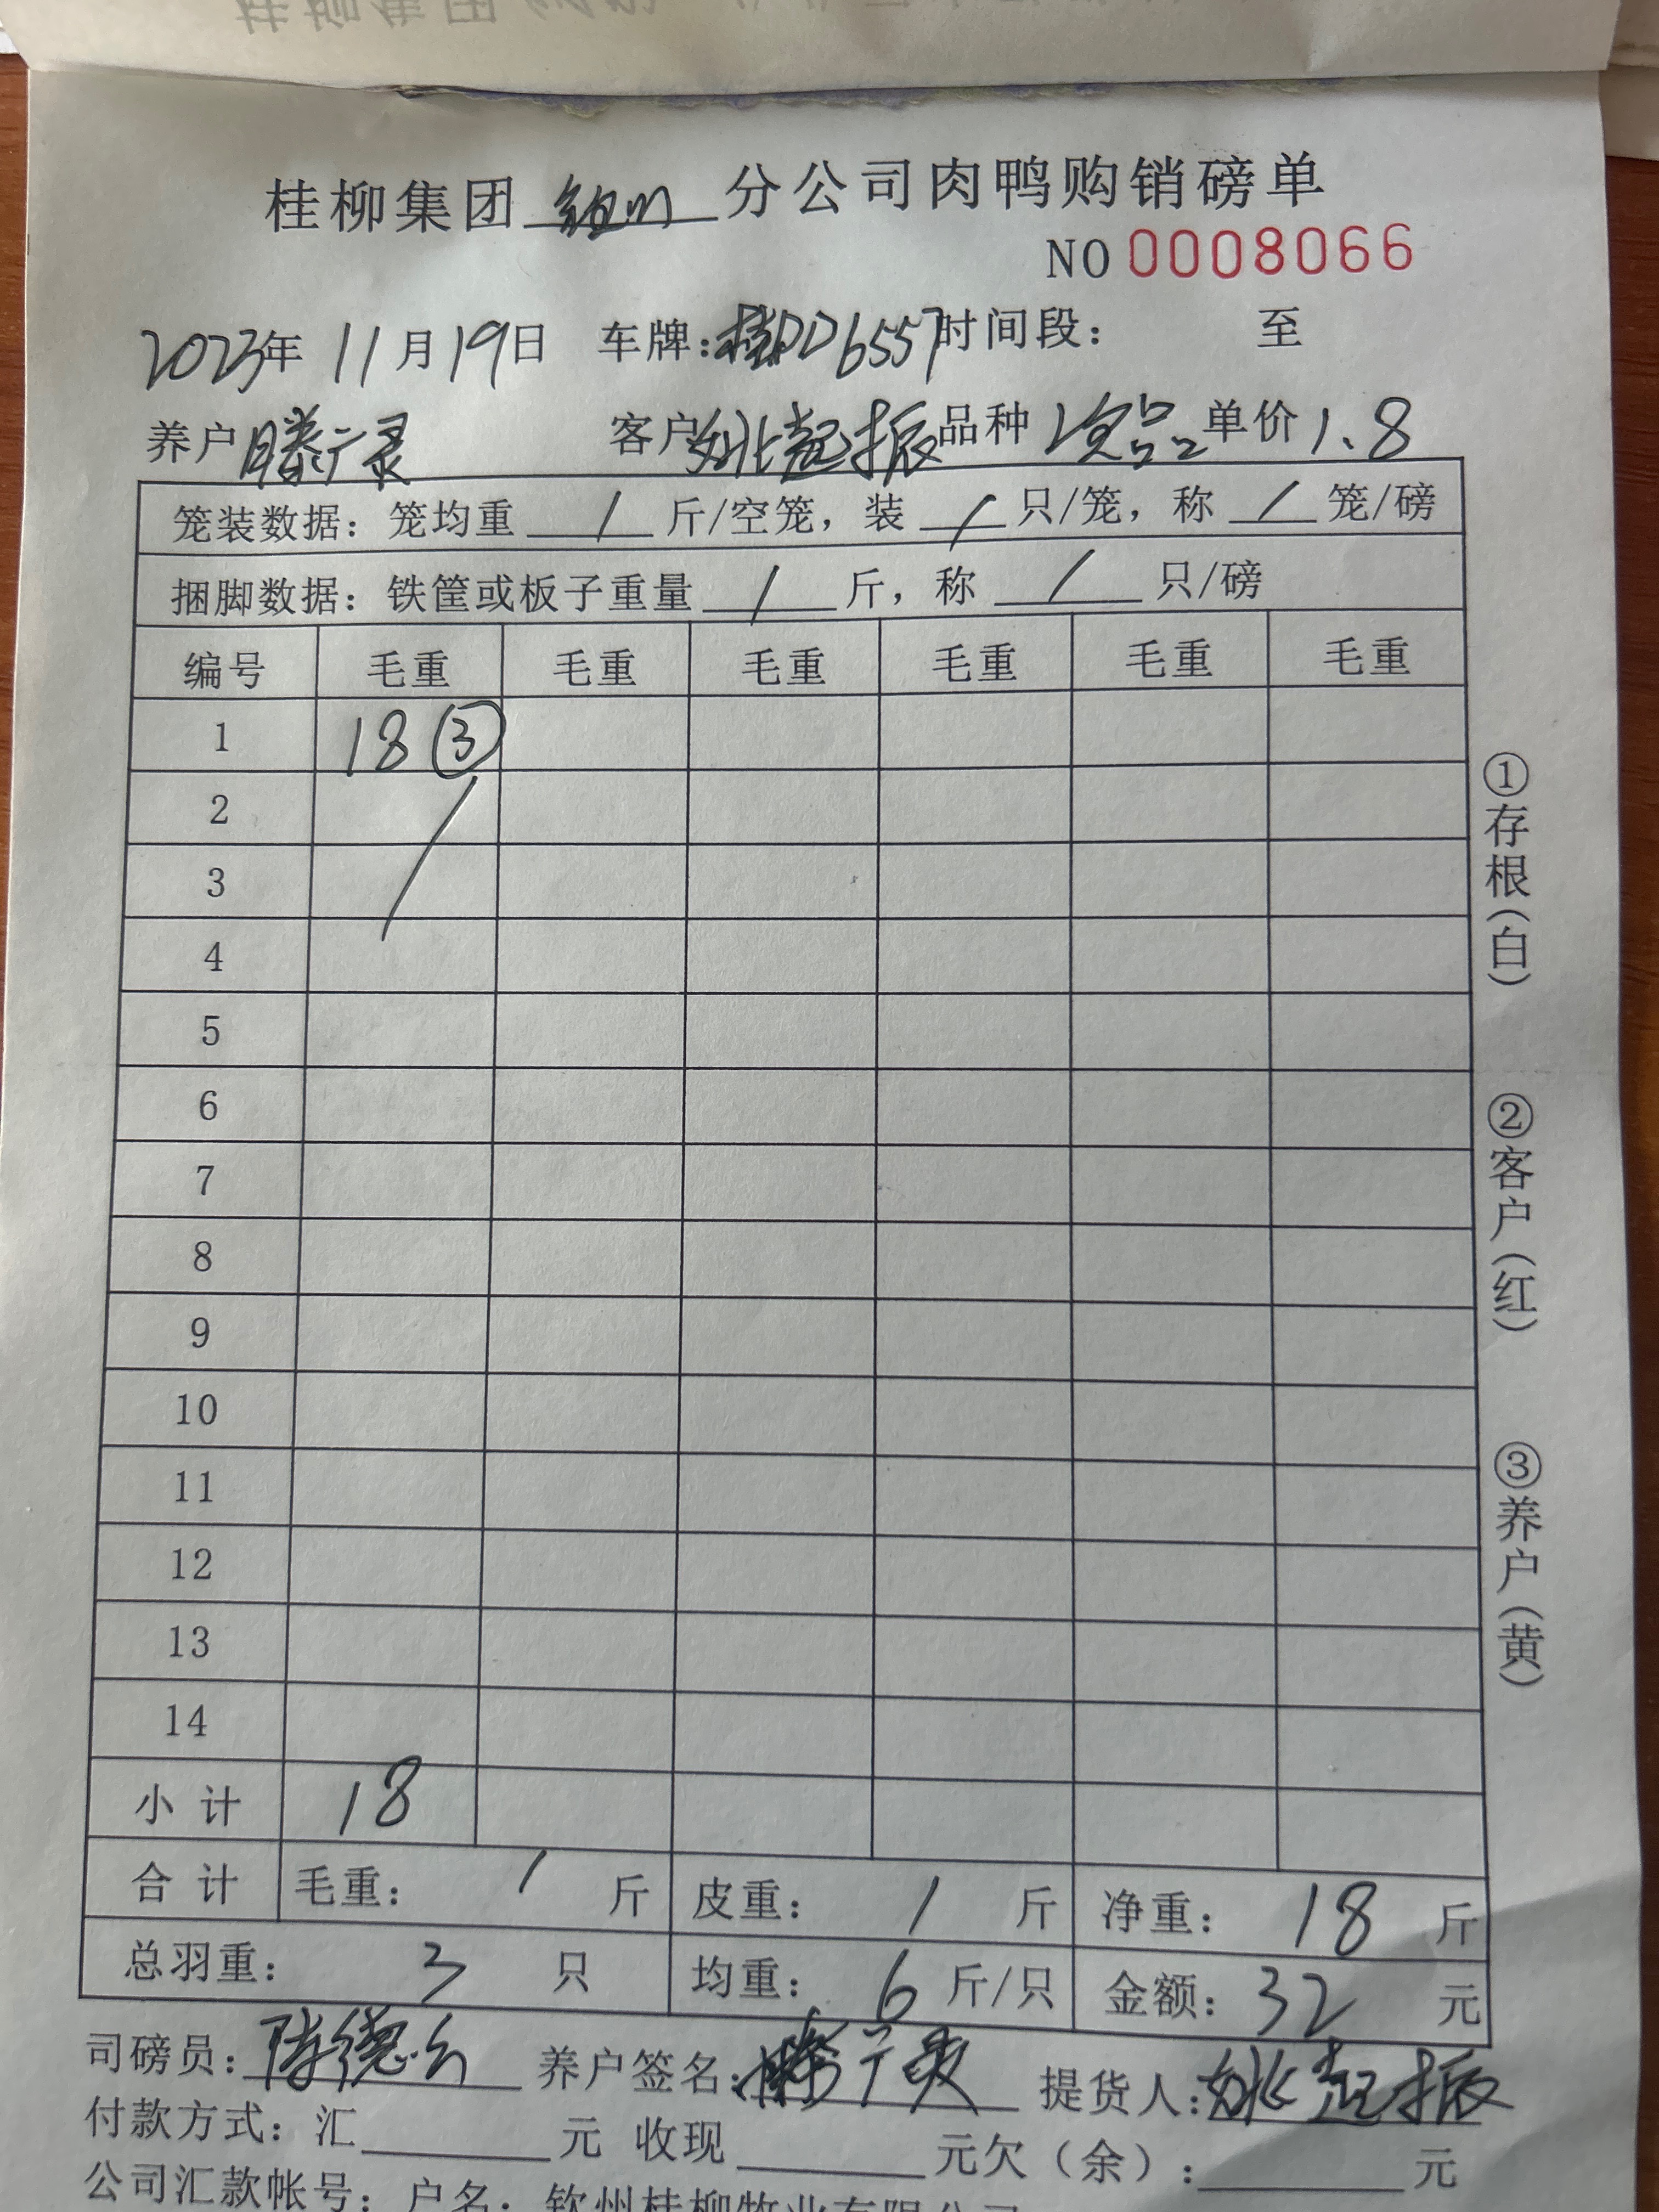 桂柳集团 钦州 分公司肉鸭购销磅单
NO 0008066
2023年 11月19日 车牌:桂DD6557 时间段: 至
养户 滕广录 客户 姚起振 品种 次品 单价 1.8
笼装数据:笼均重 / 斤/空笼,装 / 只/笼,称 / 笼/磅
捆脚数据:铁筐或板子重量 / 斤,称 / 只/磅
编号 毛重 毛重 毛重 毛重 毛重 毛重
1 18 ③
2
3
4
5
6
7
8
9
10
11
12
13
14
小计 18
合计 毛重: / 斤 皮重: / 斤 净重: 18 斤
总羽重: 3 只 均重: 6 斤/只 金额: 32 元
司磅员: 养户签名: 滕广录 提货人: 姚起振
付款方式:汇 元 收现 元欠(余): 元
公司汇款帐号:户名:钦州桂柳牧业有限公司
①存根(白)
②客户(红)
③养户(黄)